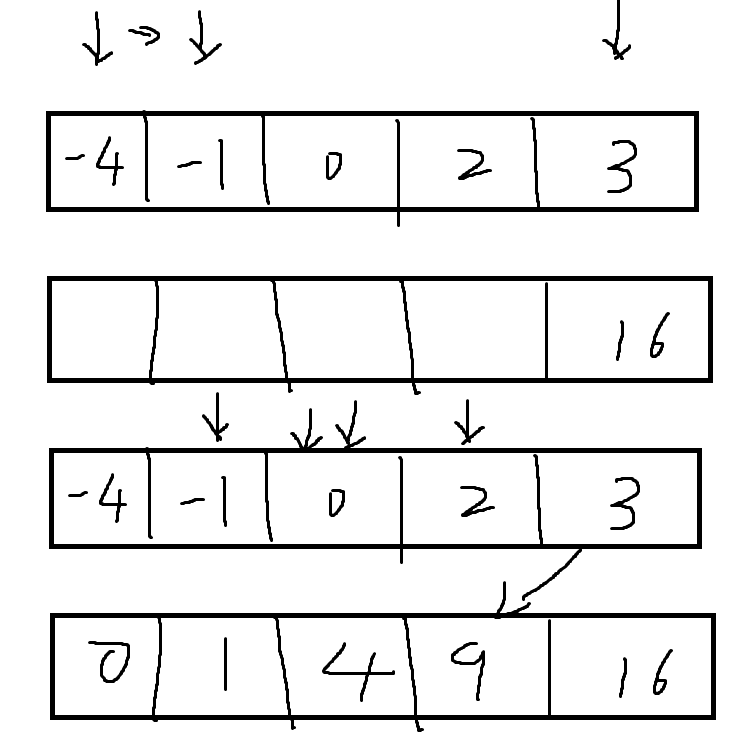 -4 -1 0 2 3
16
-4 -1 0 2 3
0 1 4 9 16